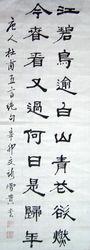 江碧鳥逾白山青花欲燃
今春看又過何日是歸年
唐人杜甫五言絕句辛卯